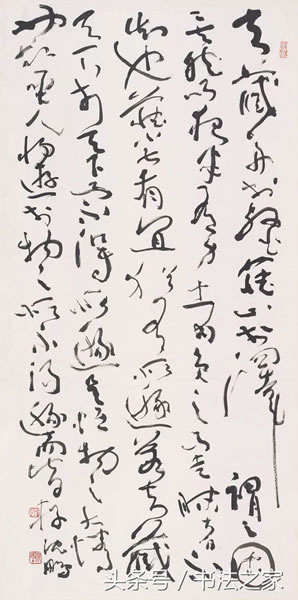 夫藏舟於壑藏山於澤謂之固
矣然而夜半有力者負之而走昧者不
知也藏小大有宜猶有所遯若夫藏
天下於天下而不得所遯是恒物之大情
也故聖人將遊於物之所不得遯而皆存 沈鵬
头条号 / 书法之家